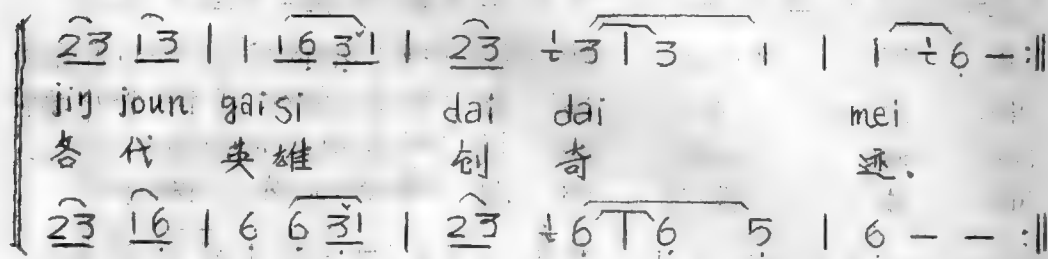 23 13 | 1 16 3ˇ1 | 23 ⅟t 3 1 3 1 | 1 ⅟t 6 — :‖
jiŋ joun gai si dai dai mei
各 代 英 雄 创 奇 迹.
23 16 | 6 6 3ˇ1 | 23 6 1 6 5 | 6 — — :‖